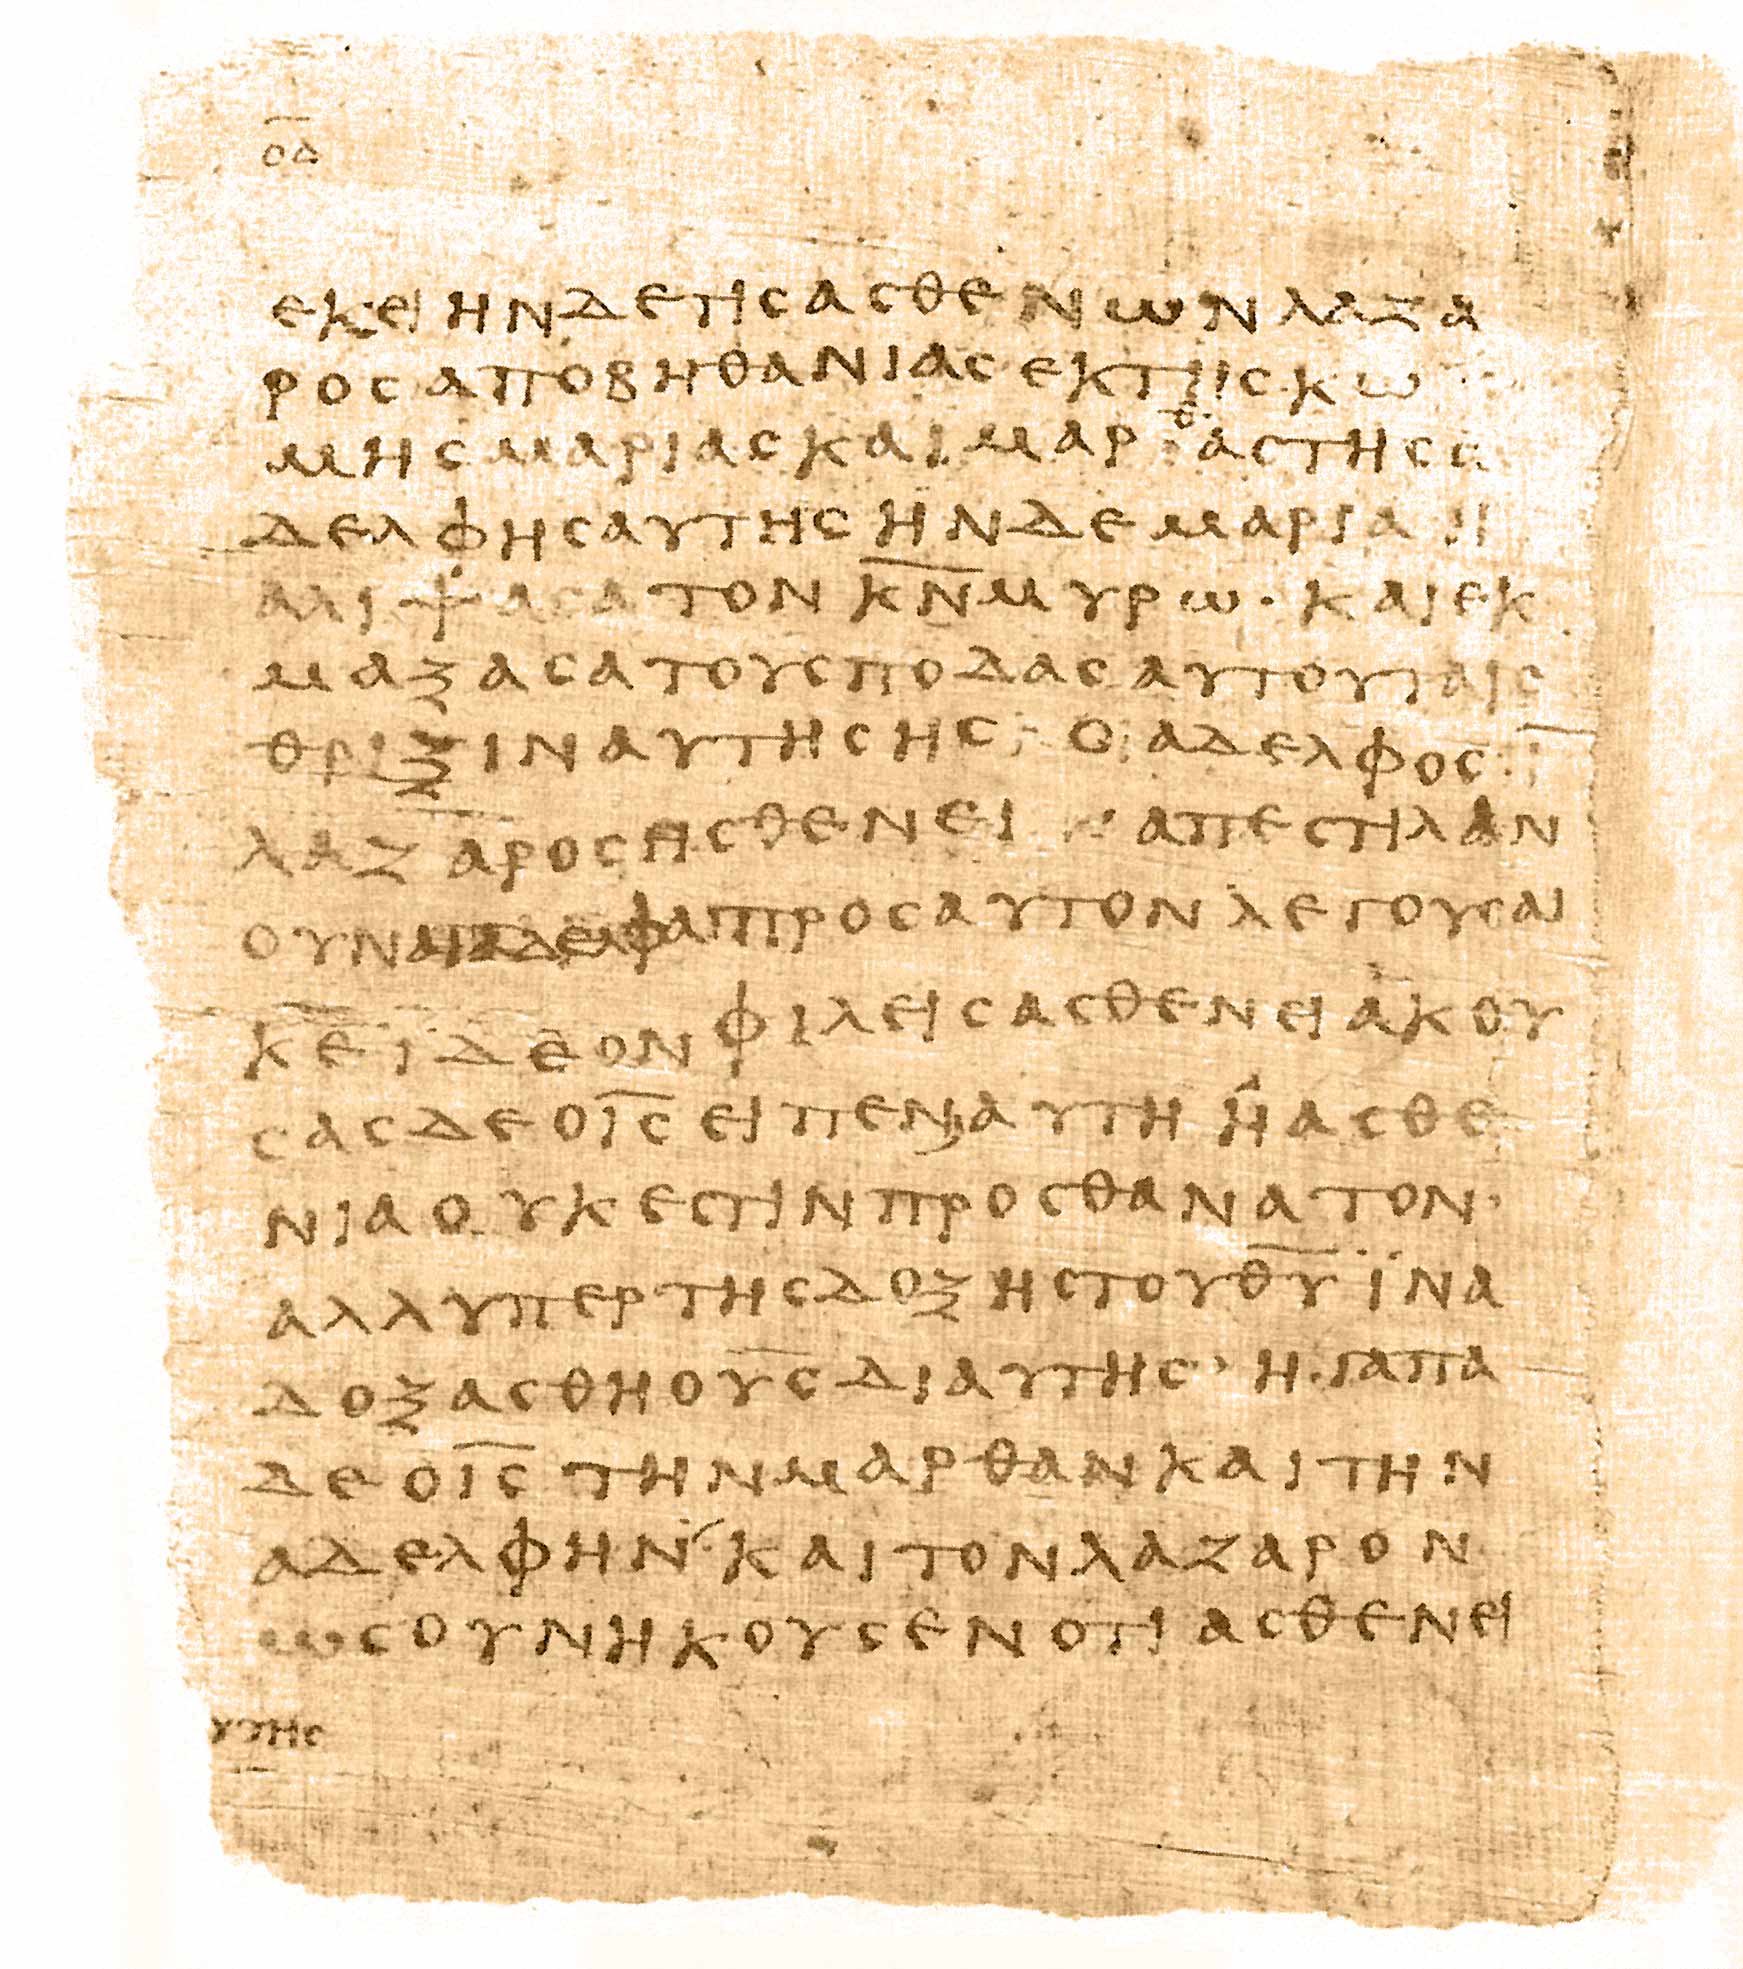 ο̅δ̅
εκειηνδετιςαςθενωνλαζα
ροςαποβηθανιαςεκτηςκω
μηςμαριαςκαιμαρθαςτηςα
δελφηςαυτηςηνδεμαριαη
αλιψαςατονκ̅ν̅μυρω·καιεκ
μαξαςατουςποδαςαυτουταις
θριξιναυτηςης·οαδελφος·
λαζαροςηςθενειαπεστιλαν
ουναιαδελφαιπροςαυτονλεγουςαι
κ̅ε̅ϊδεονφιλειςαςθενειακου
ςαςδεοι̅ς̅ειπεναυτηηαςθε
νιαουκεςτινπροςθανατον·
αλλυπερτηςδοξηςτουθ̅υ̅ϊνα
δοξαςθηου̅ς̅διαυτης·ηγαπα
δεοι̅ς̅τηνμαρθανκαιτην
αδελφην·καιτονλαζαρον
ωςουνηκουςενοτιαςθενει
υτης